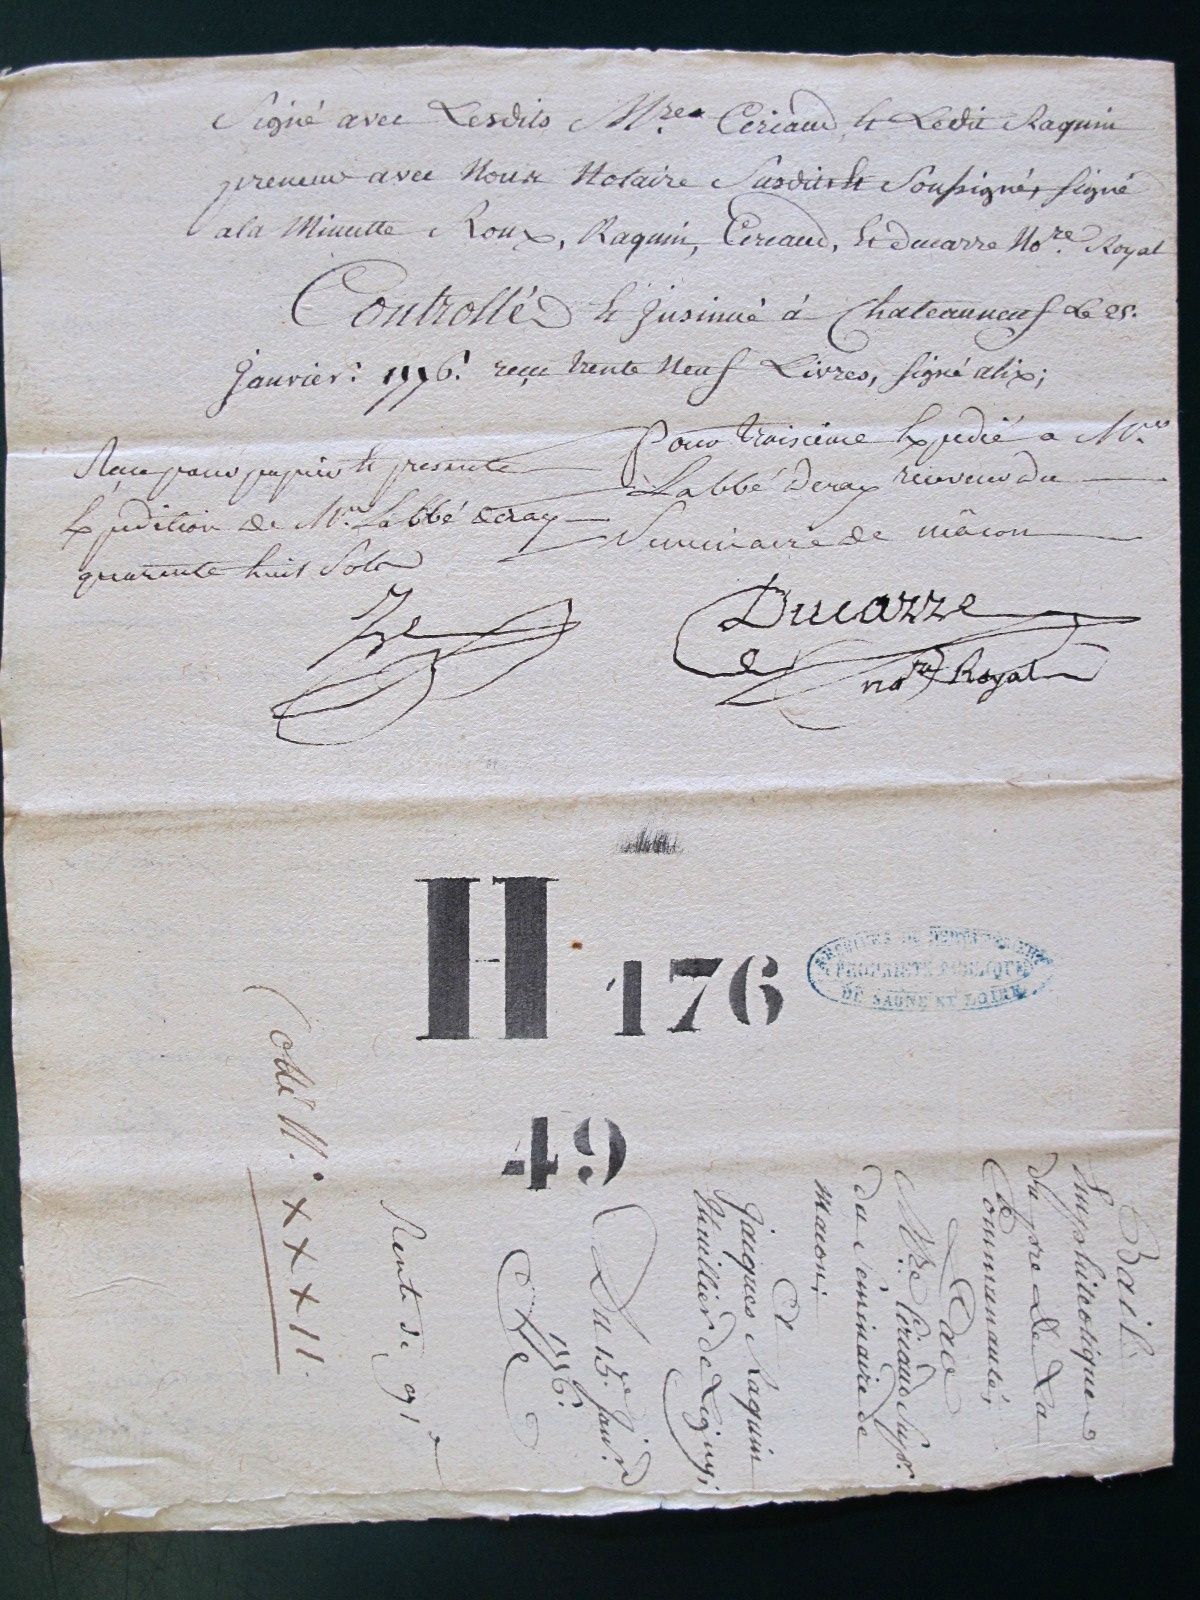 Signé avec Lesdits Mres Ceriaud, et Ledit Raquin
preneur avec Nous Notaire Susdit et Soussigné, signé
a la Minutte Roux, Raquin, Ceriaud, et ducarre No.re Royal
Controllé et Insinué à Chateauneuf le 25.
Janvier: 1776. reçu trente Neuf Livres, signé alix;
Reçu pour papier et presente
Expedition de Mr. Labbé deray
quarente huit Sols
Pour troisieme Expedié a Mr.
Labbé Deray receveur du
Seminaire de mâcon
Ducarre
no.re Royal
H 176
ARCHIVES DU DEPARTEMENT
PROPRIETE PUBLIQUE
DE SAONE ET LOIRE
49
Bail
Emphiteotique
Du pre De La
Communauté;
Par
Mre. Ceriaud Supr.
du Seminaire de
Macon;
A
Jacques Raquin
thuillier de Ligny;
Du 15e. Janr.
1776.
Rente de 91
Cotte N.° XXXII.